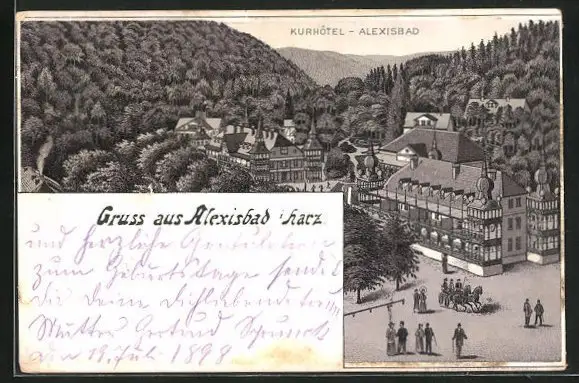 KURHÔTEL - ALEXISBAD
Gruss aus Alexisbad i/Harz
und herzliche Gratulation
zum Geburtstage sendet
Dir deine Dichliebende
Mutter Gertrud
den 19. Juli 1898